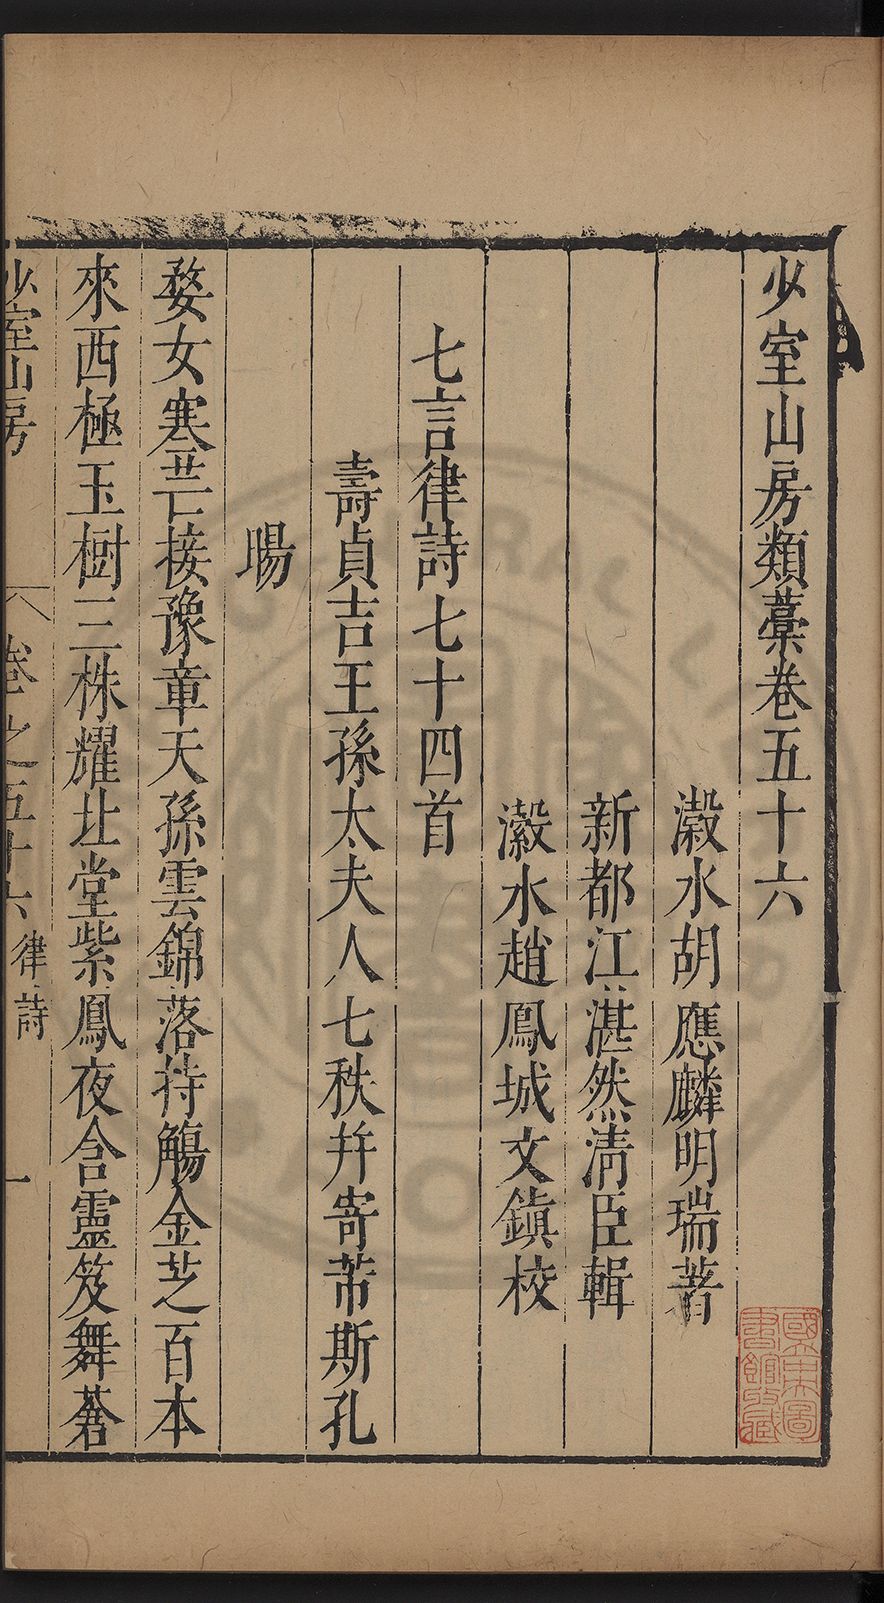 少室山房類藁卷五十六
瀔水胡應麟明瑞著
新都江湛然清臣輯
瀫水趙鳳城文鎮校
七言律詩七十四首
壽貞吉王孫太夫人七秩幷寄芾斯孔
暘
婺女寒芒接豫章天孫雲錦落持觴金芝百本
來西極玉樹三株耀北堂紫鳳夜含靈笈舞蒼
少室山房
卷之五十六
律詩
一
國立中央圖
書館收藏